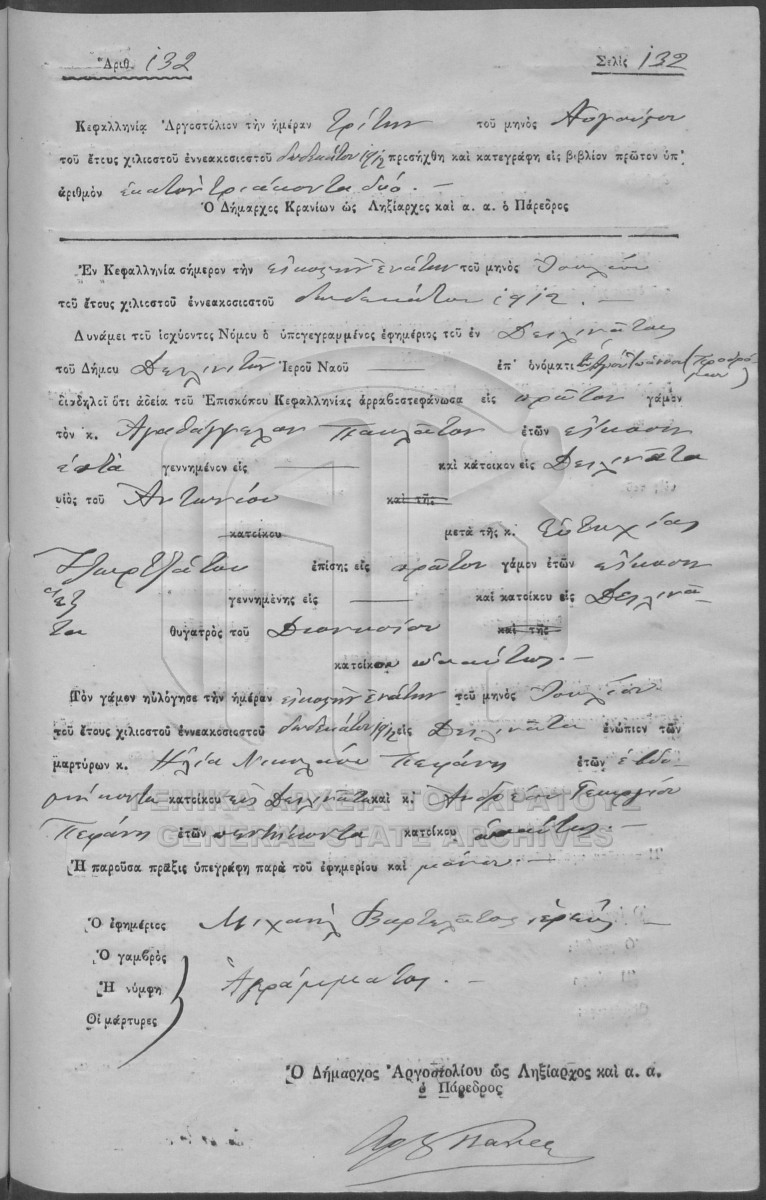 Ἀριθ. 132 Σελὶς 132
Κεφαλληνίᾳ Ἀργοστόλιον τὴν ἡμέραν τρίτην τοῦ μηνὸς Αὐγούστου
τοῦ ἔτους χιλιοστοῦ ἐννεακοσιοστοῦ δωδεκάτου 1912 προσήχθη καὶ κατεγράφη εἰς βιβλίον πρῶτον ὑπ'
ἀριθμὸν ἑκατὸν τριάκοντα δύο. —
Ὁ Δήμαρχος Κρανίων ὡς Ληξίαρχος καὶ α. α. ὁ Πάρεδρος
Ἐν Κεφαλληνίᾳ σήμερον τὴν εἰκοστὴν ἐνάτην τοῦ μηνὸς Ἰουλίου
τοῦ ἔτους χιλιοστοῦ ἐννεακοσιοστοῦ δωδεκάτου 1912. —
Δυνάμει τοῦ ἰσχύοντος Νόμου ὁ ὑπογεγραμμένος ἐφημέριος τοῦ ἐν Δειλινάτοις
τοῦ Δήμου Δειλινάτων Ἱεροῦ Ναοῦ — ἐπ' ὀνόματι Ἰωάννου (Προδρό-
μου)
διαδηλοῖ ὅτι ἀδείᾳ τοῦ Ἐπισκόπου Κεφαλληνίας ἀρραβοστεφάνωσα εἰς πρῶτον γάμον
τὸν κ. Ἀγαθάγγελον Παυλάτον ἐτῶν εἴκοσι
ἑπτὰ γεννημένον εἰς — καὶ κάτοικον εἰς Δειλινάτα
υἱὸς τοῦ Ἀντωνίου καὶ τῆς
κατοίκου μετὰ τῆς κ. Εὐτυχίας
Τζωρτζάτου ἐπίσης εἰς πρῶτον γάμον ἐτῶν εἴκοσι
ἕξ γεννημένης εἰς — καὶ κατοίκου εἰς Δειλινά-
τα θυγατρὸς τοῦ Διονυσίου καὶ τῆς
κατοίκου ὡσαύτως. —
Τὸν γάμον ηὐλόγησε τὴν ἡμέραν εἰκοστὴν ἐνάτην τοῦ μηνὸς Ἰουλίου
τοῦ ἔτους χιλιοστοῦ ἐννεακοσιοστοῦ δωδεκάτου 1912 εἰς Δειλινάτα ἐνώπιον τῶν
μαρτύρων κ. Ἠλία Νικολάου Πεφάνη ἐτῶν ἑβδο-
μήκοντα κατοίκου εἰς Δειλινάτα καὶ κ. Ἀνδρέου Γεωργίου
Πεφάνη ἐτῶν πεντήκοντα κατοίκου ὡσαύτως. —
Ἡ παροῦσα πρᾶξις ὑπεγράφη παρὰ τοῦ ἐφημερίου καὶ μόνου. —
ΓΕΝΙΚΑ ΑΡΧΕΙΑ ΤΟΥ ΚΡΑΤΟΥΣ
GENERAL STATE ARCHIVES
Ὁ ἐφημέριος Μιχαὴλ Βαρτελάτος ἱερεὺς —
Ὁ γαμβρὸς
Ἡ νύμφη Ἀγράμματοι. —
Οἱ μάρτυρες
Ὁ Δήμαρχος Ἀργοστολίου ὡς Ληξίαρχος καὶ α. α.
ὁ Πάρεδρος